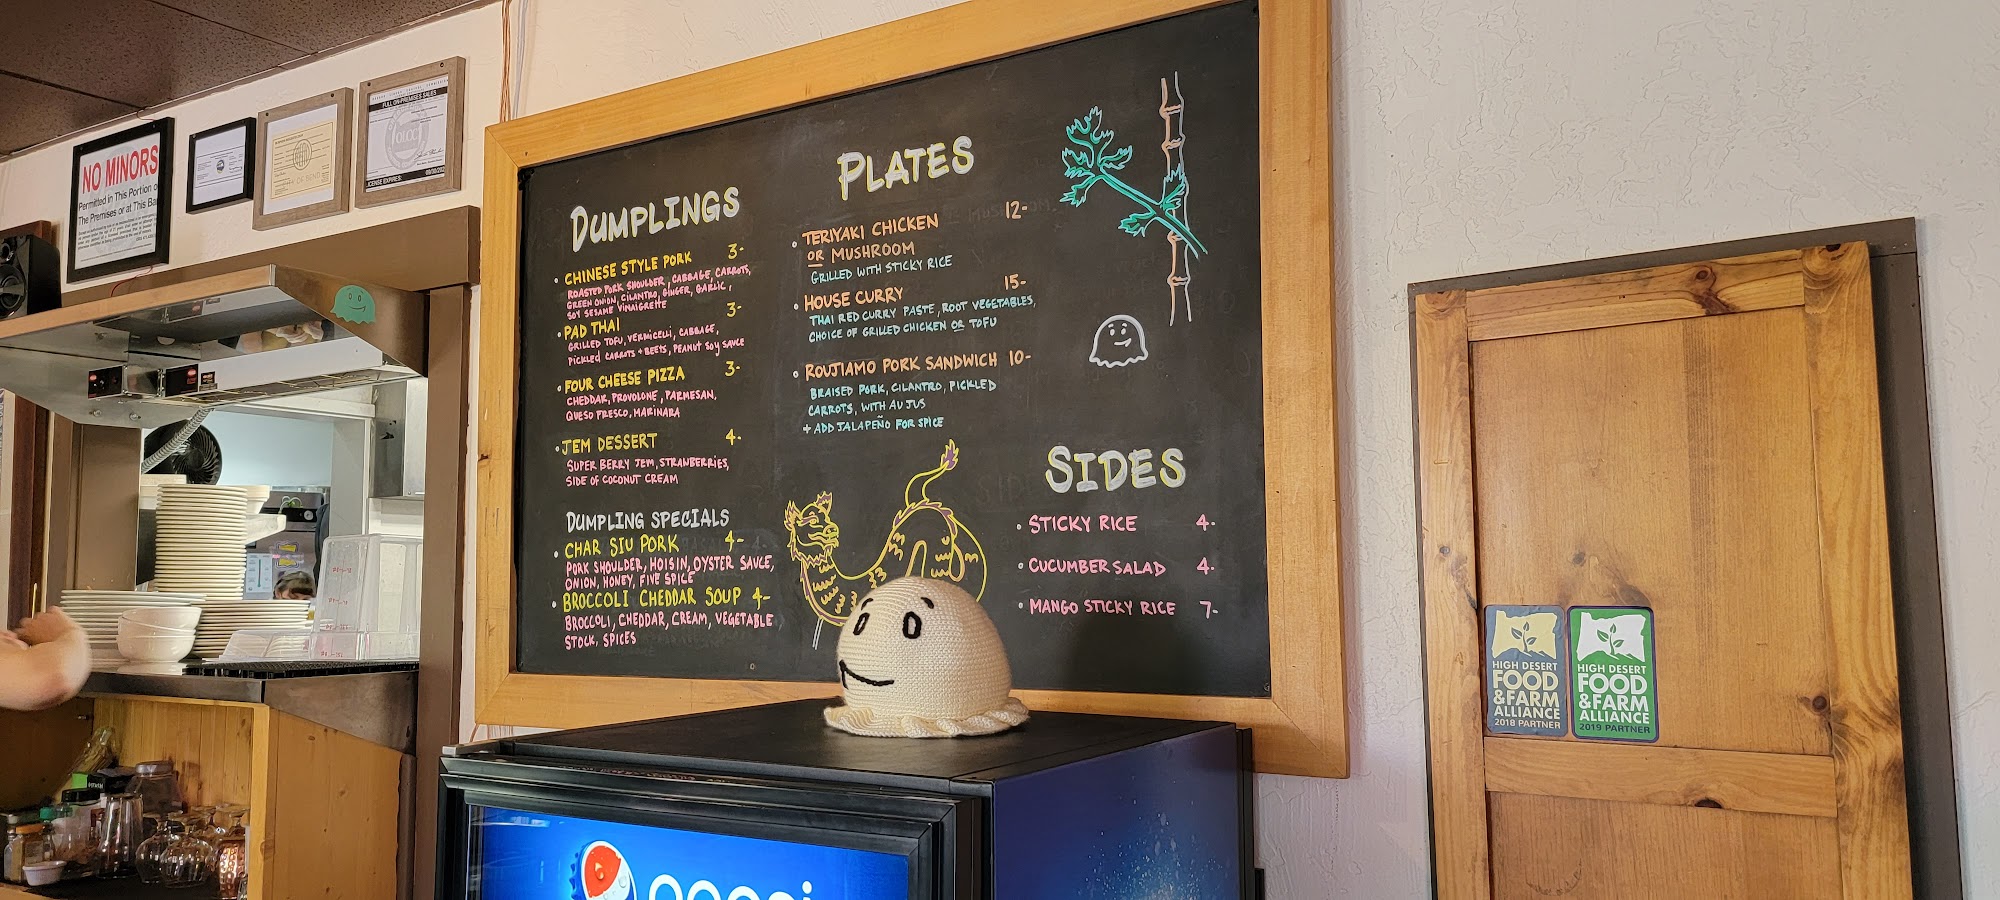 NO MINORS
Permitted in This Portion o
The Premises or at This Ba
FULL ON-PREMISES SALES
OLCC
LICENSE EXPIRES:
DUMPLINGS
CHINESE STYLE PORK 3-
ROASTED PORK SHOULDER, CABBAGE, CARROTS,
GREEN ONION, CILANTRO, GINGER, GARLIC,
SOY SESAME VINAIGRETTE
PAD THAI 3-
GRILLED TOFU, VERMICELLI, CABBAGE,
PICKLED CARROTS + BEETS, PEANUT SOY SAUCE
FOUR CHEESE PIZZA 3-
CHEDDAR, PROVOLONE, PARMESAN,
QUESO FRESCO, MARINARA
JEM DESSERT 4-
SUPER BERRY JEM, STRANBERRIES,
SIDE OF COCONUT CREAM
DUMPLING SPECIALS
CHAR SIU PORK 4-
PORK SHOULDER, HOISIN, OYSTER SAUCE,
ONION, HONEY, FIVE SPICE
BROCCOLI CHEDDAR SOUP 4-
BROCCOLI, CHEDDAR, CREAM, VEGETABLE
STOCK, SPICES
PLATES
TERIYAKI CHICKEN 12-
OR MUSHROOM
GRILLED WITH STICKY RICE
HOUSE CURRY 15-
THAI RED CURRY PASTE, ROOT VEGETABLES,
CHOICE OF GRILLED CHICKEN OR TOFU
ROUJIAMO PORK SANDWICH 10-
BRAISED PORK, CILANTRO, PICKLED
CARROTS, WITH AU JUS
+ ADD JALAPEÑO FOR SPICE
SIDES
STICKY RICE 4-
CUCUMBER SALAD 4-
MANGO STICKY RICE 7-
pepsi
HIGH DESERT
FOOD
& FARM
ALLIANCE
2018 PARTNER
HIGH DESERT
FOOD
& FARM
ALLIANCE
2019 PARTNER